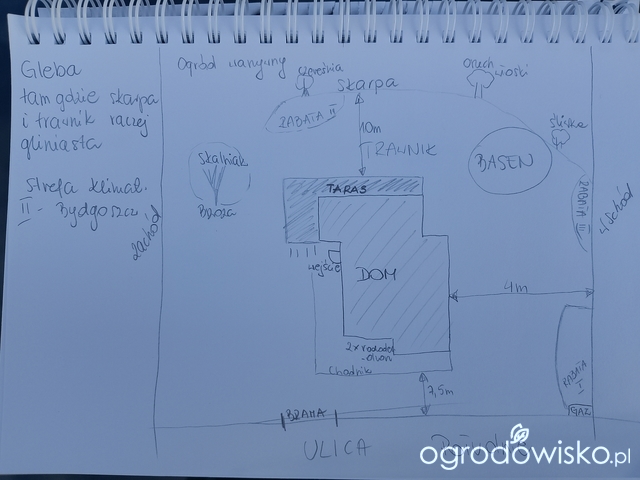 Gleba
tam gdzie skarpa
i trawnik raczej
gliniasta
Strefa klimat.
II - Bydgoszcz
Ogród warzywny
czereśnia
Skarpa
orzech
włoski
śliwka
RABATA II
10m
TRAWNIK
BASEN
Skalniak
Brzoza
zachód
TARAS
wejście
DOM
RABATA III
wschód
4m
2x rodode
-dron
Chodnik
7,5m
RABATA
I
GAZ
BRAMA
ULICA
ogrodowisko.pl